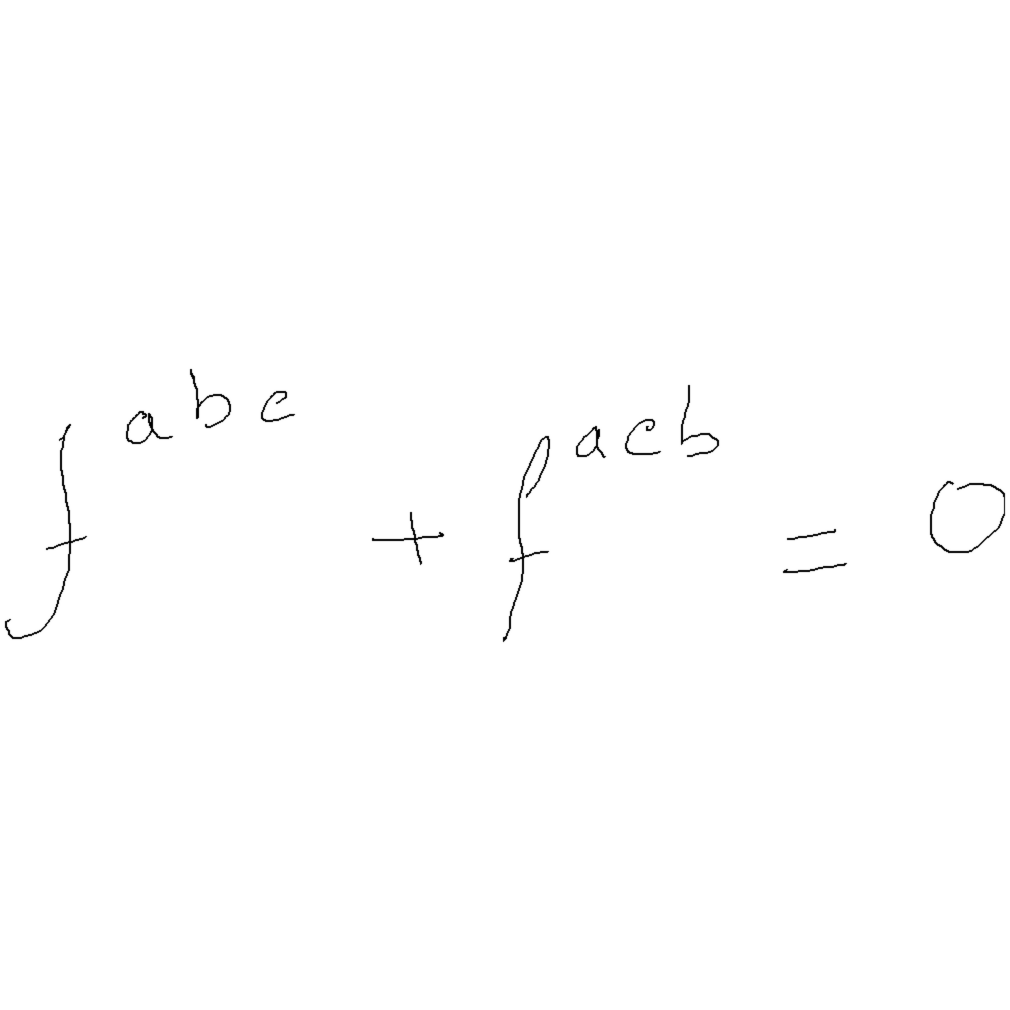 $f^{abc} + f^{acb} = 0$